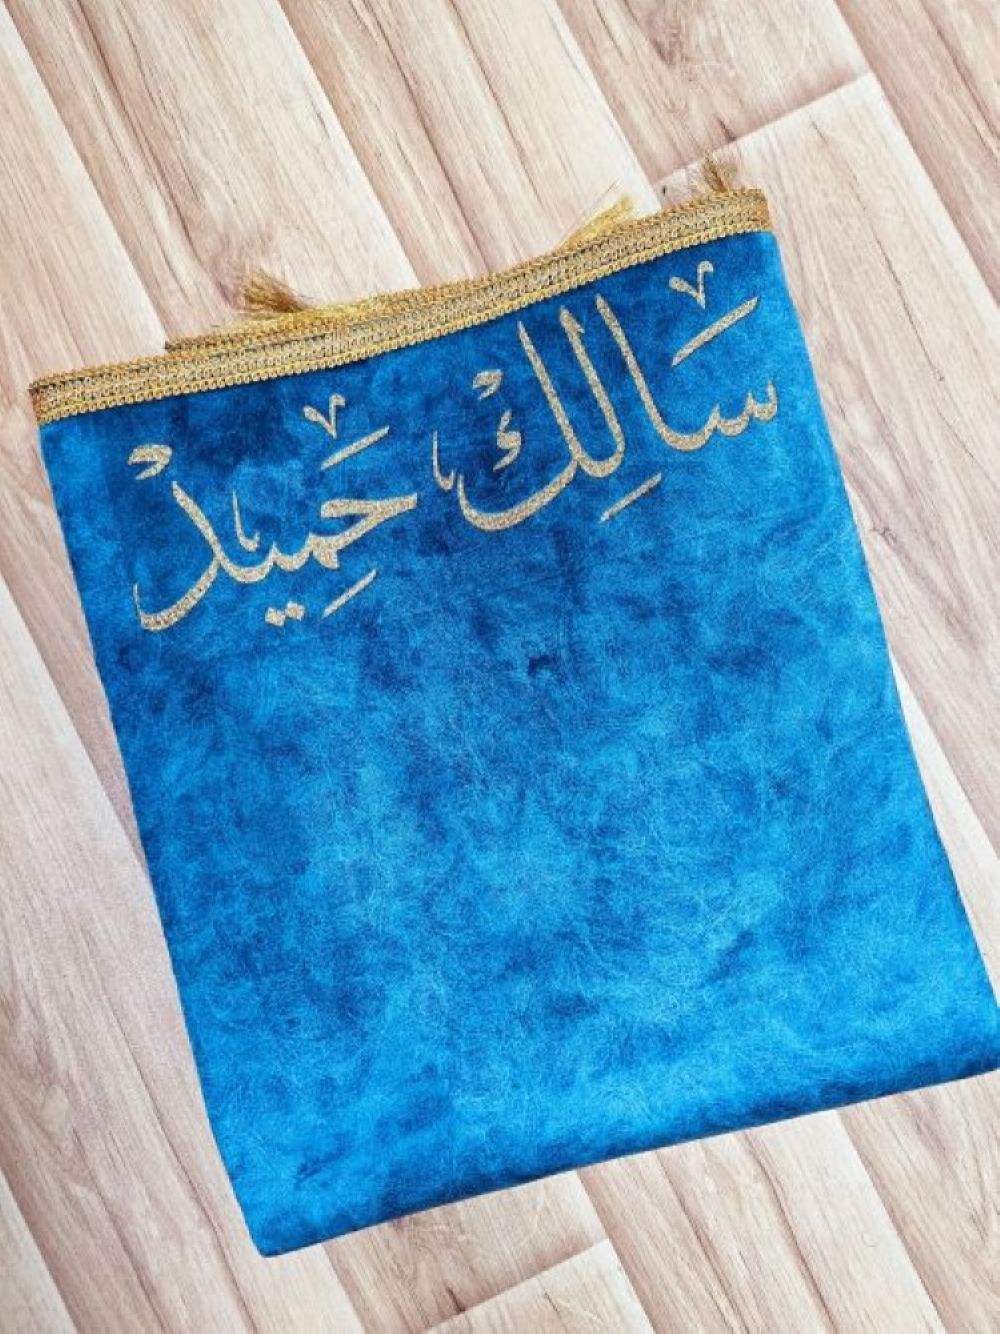 سَالِكْ حَمِيدْ